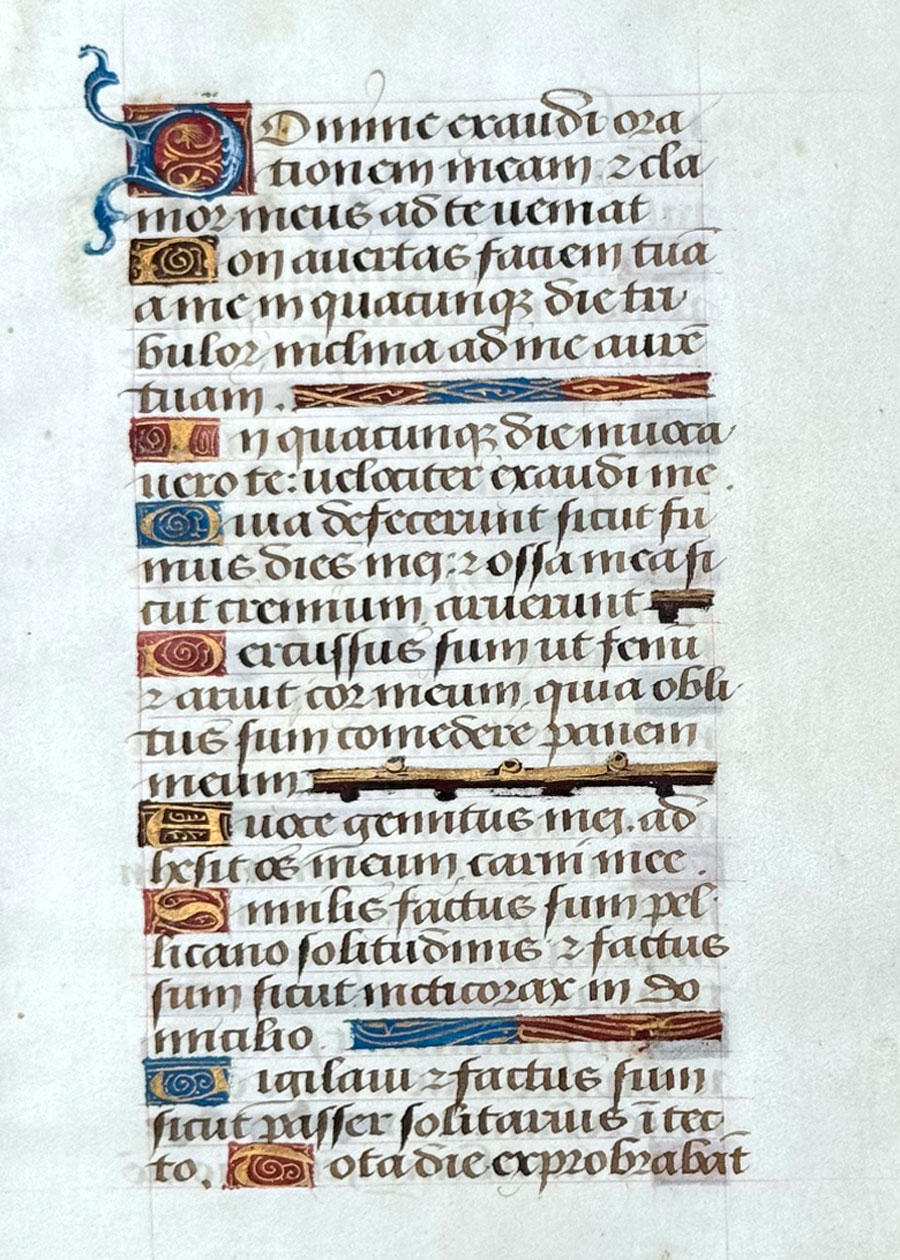 Domine exaudi ora
tionem meam ⁊ cla
mor meus ad te ueniat
Non auertas faciem tuā
a me in quacunqꝫ die tri
bulor inclina ad me aurē
tuam.
In quacunqꝫ die inuoca
uero te: uelociter exaudi me
Quia defecerunt sicut fu
mus dies mei: ⁊ ossa mea si
cut cremium aruerunt
Percussus sum ut fenū
⁊ aruit cor meum, quia obli
tus sum comedere panem
meum
A uoce gemitus mei. ad
hesit os meum carni mee.
Similis factus sum pel
licano solitudinis ⁊ factus
sum sicut nicticorax in do
micilio.
Vigilaui ⁊ factus sum
sicut passer solitarius ī tec
to. Tota die exprobrabāt